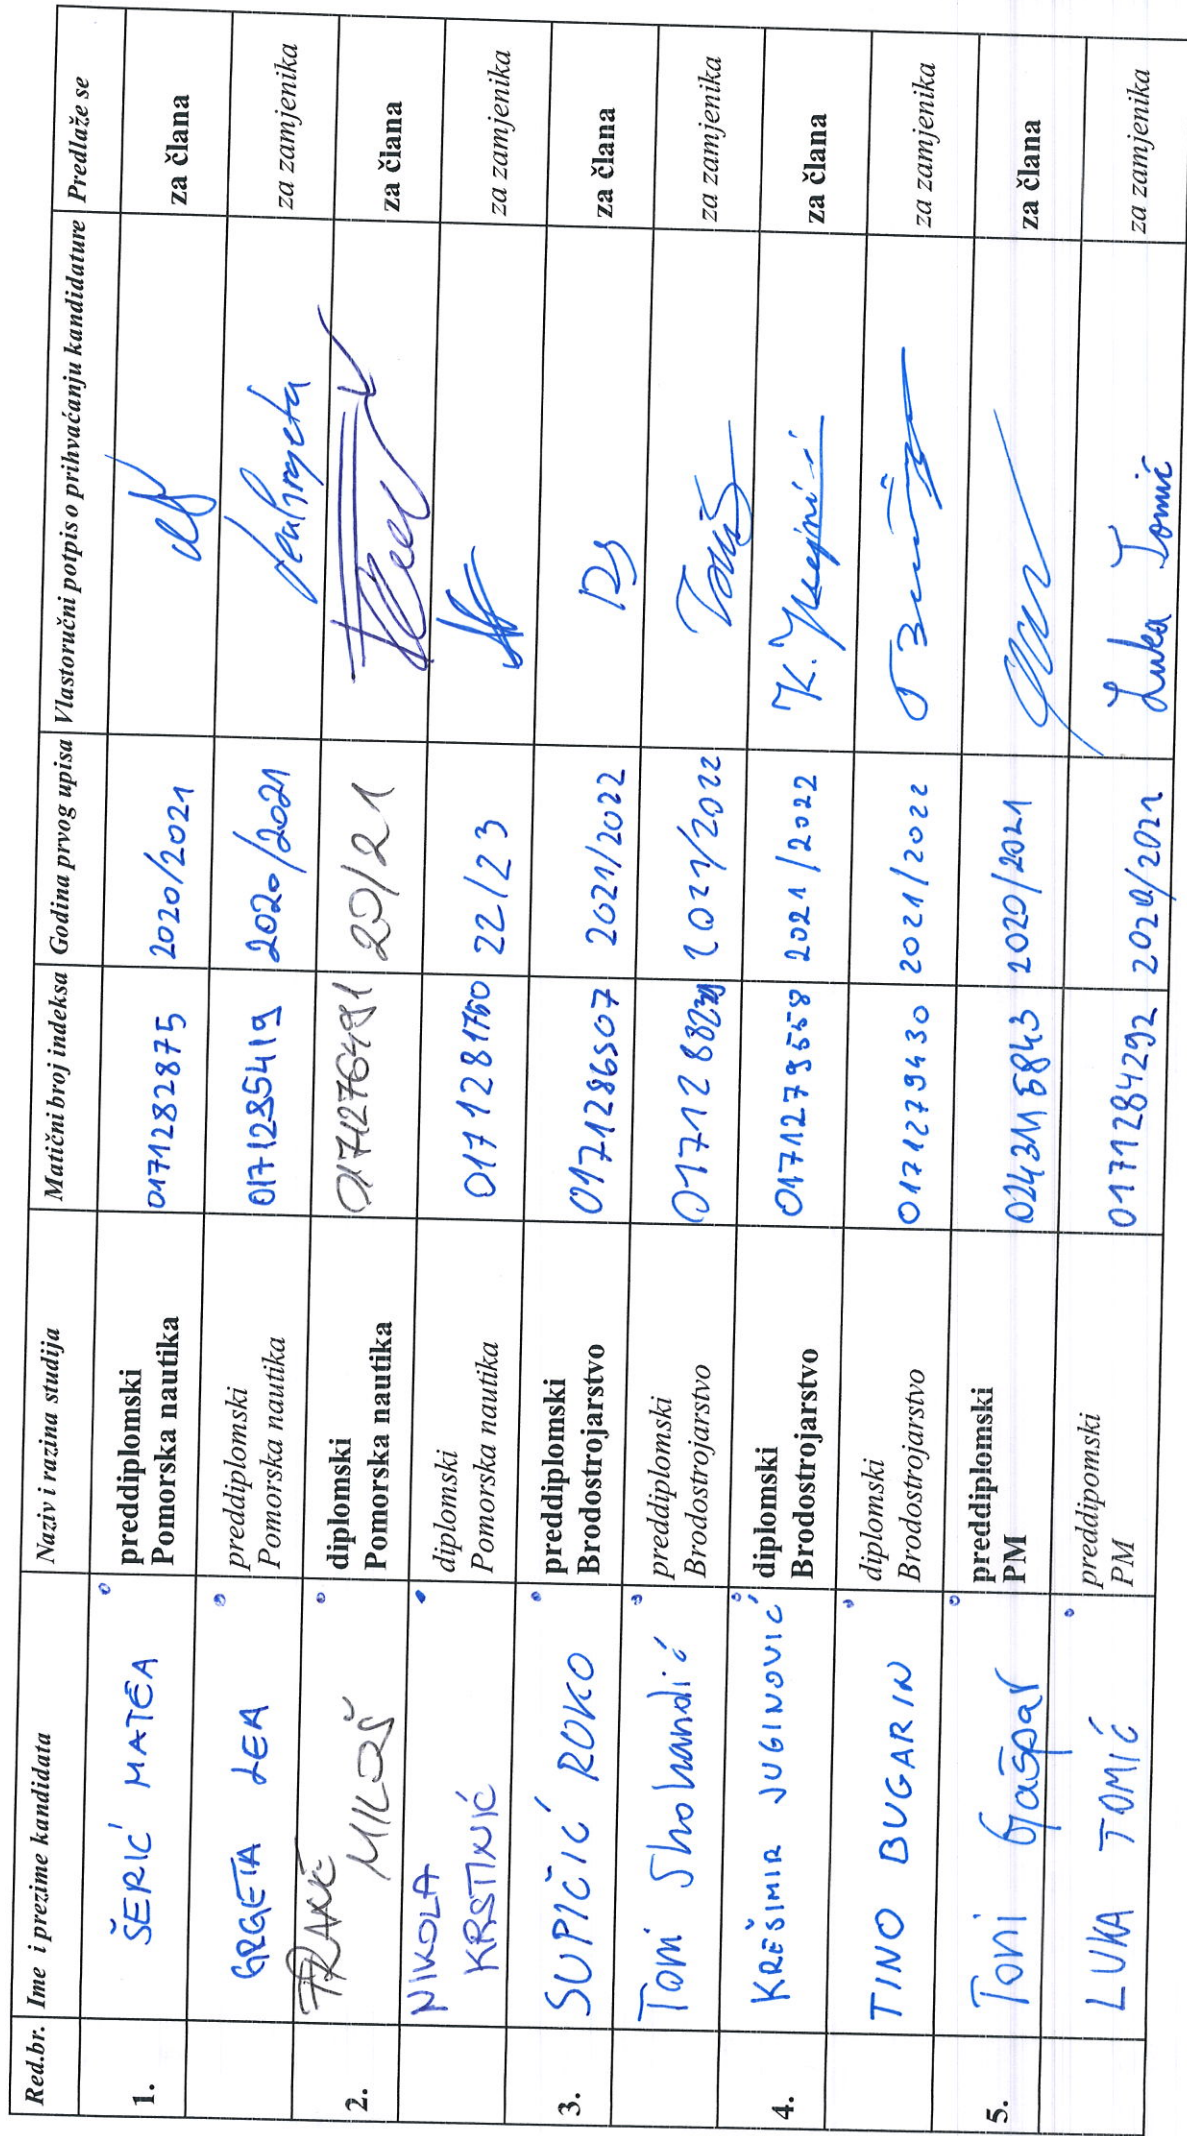 Red.br. Ime i prezime kandidata Naziv i razina studija Matični broj indeksa Godina prvog upisa Vlastoručni potpis o prihvaćanju kandidature Predlaže se
1. ŠERIĆ MATEA preddiplomski Pomorska nautika 0171282875 2020/2021 za člana
GRGETA LEA preddiplomski Pomorska nautika 0171285419 2020/2021 za zamjenika
2. FRANE MILOŠ diplomski Pomorska nautika 0171276491 20/21 za člana
NIKOLA KRSTINIĆ diplomski Pomorska nautika 0171281760 22/23 za zamjenika
3. SUPIČIĆ ROKO preddiplomski Brodostrojarstvo 0171286507 2021/2022 RS za člana
Toni preddiplomski Brodostrojarstvo 2021/2022 za zamjenika
4. KREŠIMIR JUGINOVIĆ diplomski Brodostrojarstvo 0171279558 2021/2022 K. za člana
TINO BUGARIN diplomski Brodostrojarstvo 0171279430 2021/2022 za zamjenika
5. Toni Gašpar preddiplomski PM 2020/2021 za člana
LUKA TOMIĆ preddipomski PM 0171284292 Luka Tomić za zamjenika